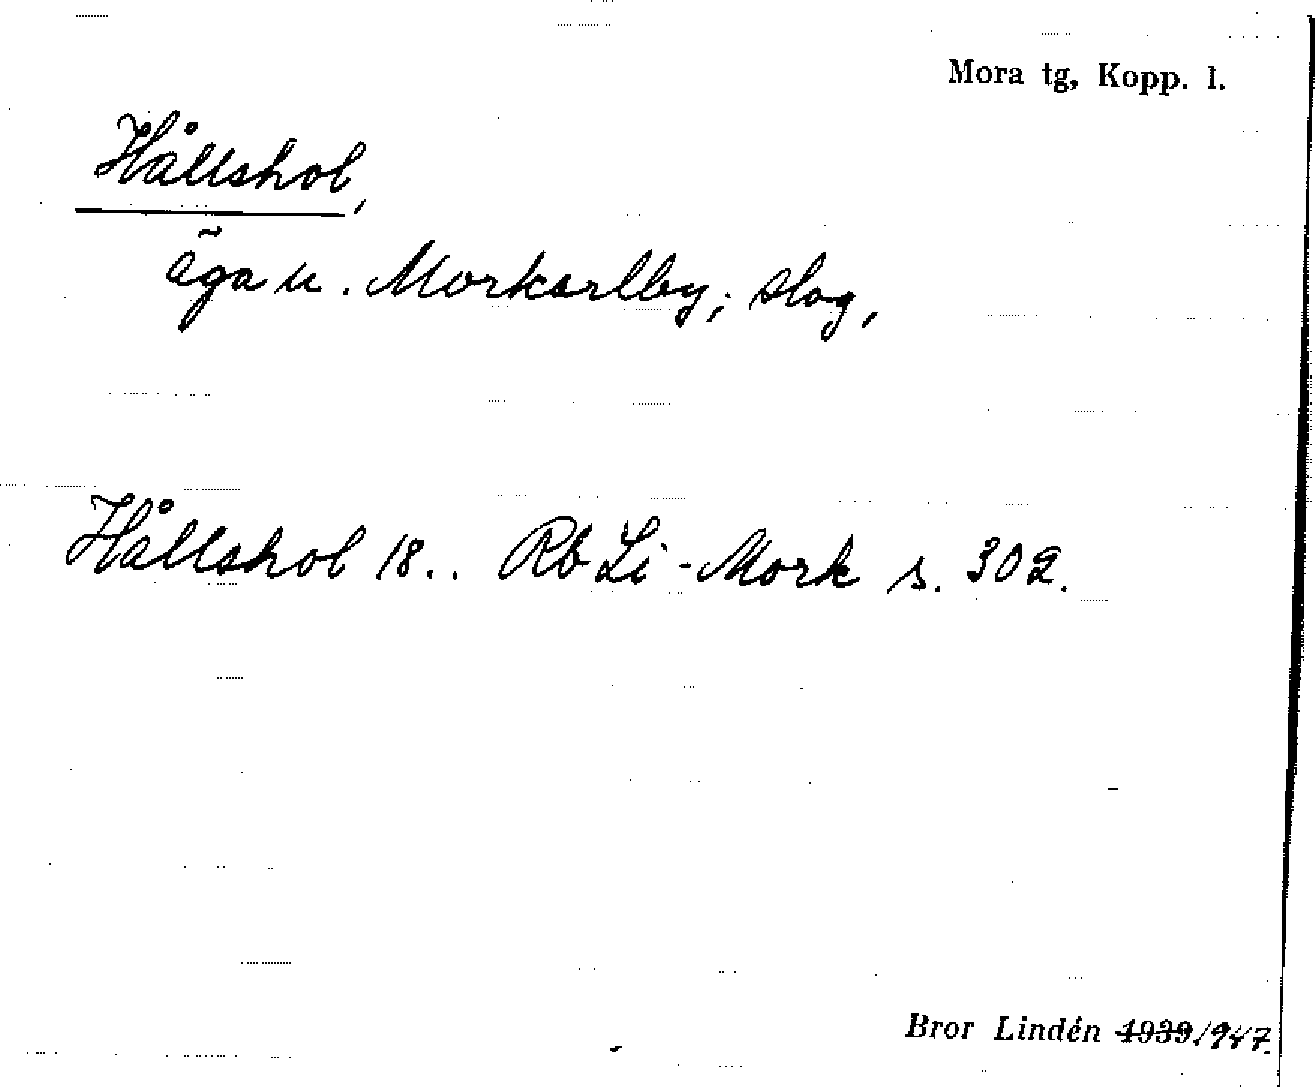 Mora tg, Kopp. l.
Hållshol,
äga u. Morkarlby; slog,
Hållshol 18.. Rb Li-Mork s. 302.
Bror Lindén 1939 1947.